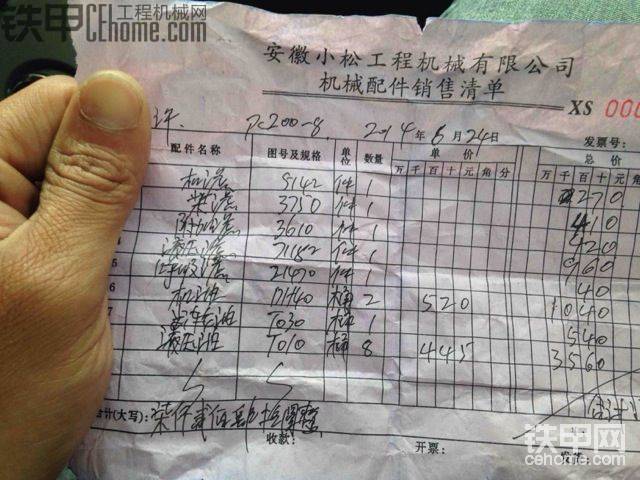 铁甲 工程机械网
CEhome.com
安徽小松工程机械有限公司
机械配件销售清单
XS 000
PC200-8 2014年6月24日
发票号:
配件名称 图号及规格 单位 数量 单价 总价
万 千 百 十 元 角 分 万 千 百 十 元 角
机滤 5142 件 1 270
柴滤 3750 件 1 410
附加滤 3610 件 1 420
液压滤 21182 件 1 960
呼吸滤 21470 件 1 40
机油 DH40 桶 2 520 1040
TO30 桶 1 540
液压油 TO10 桶 8 445 3560
合计(大写): 柒仟贰佰
收款: 开票: 发货:
铁甲网
cehome.com